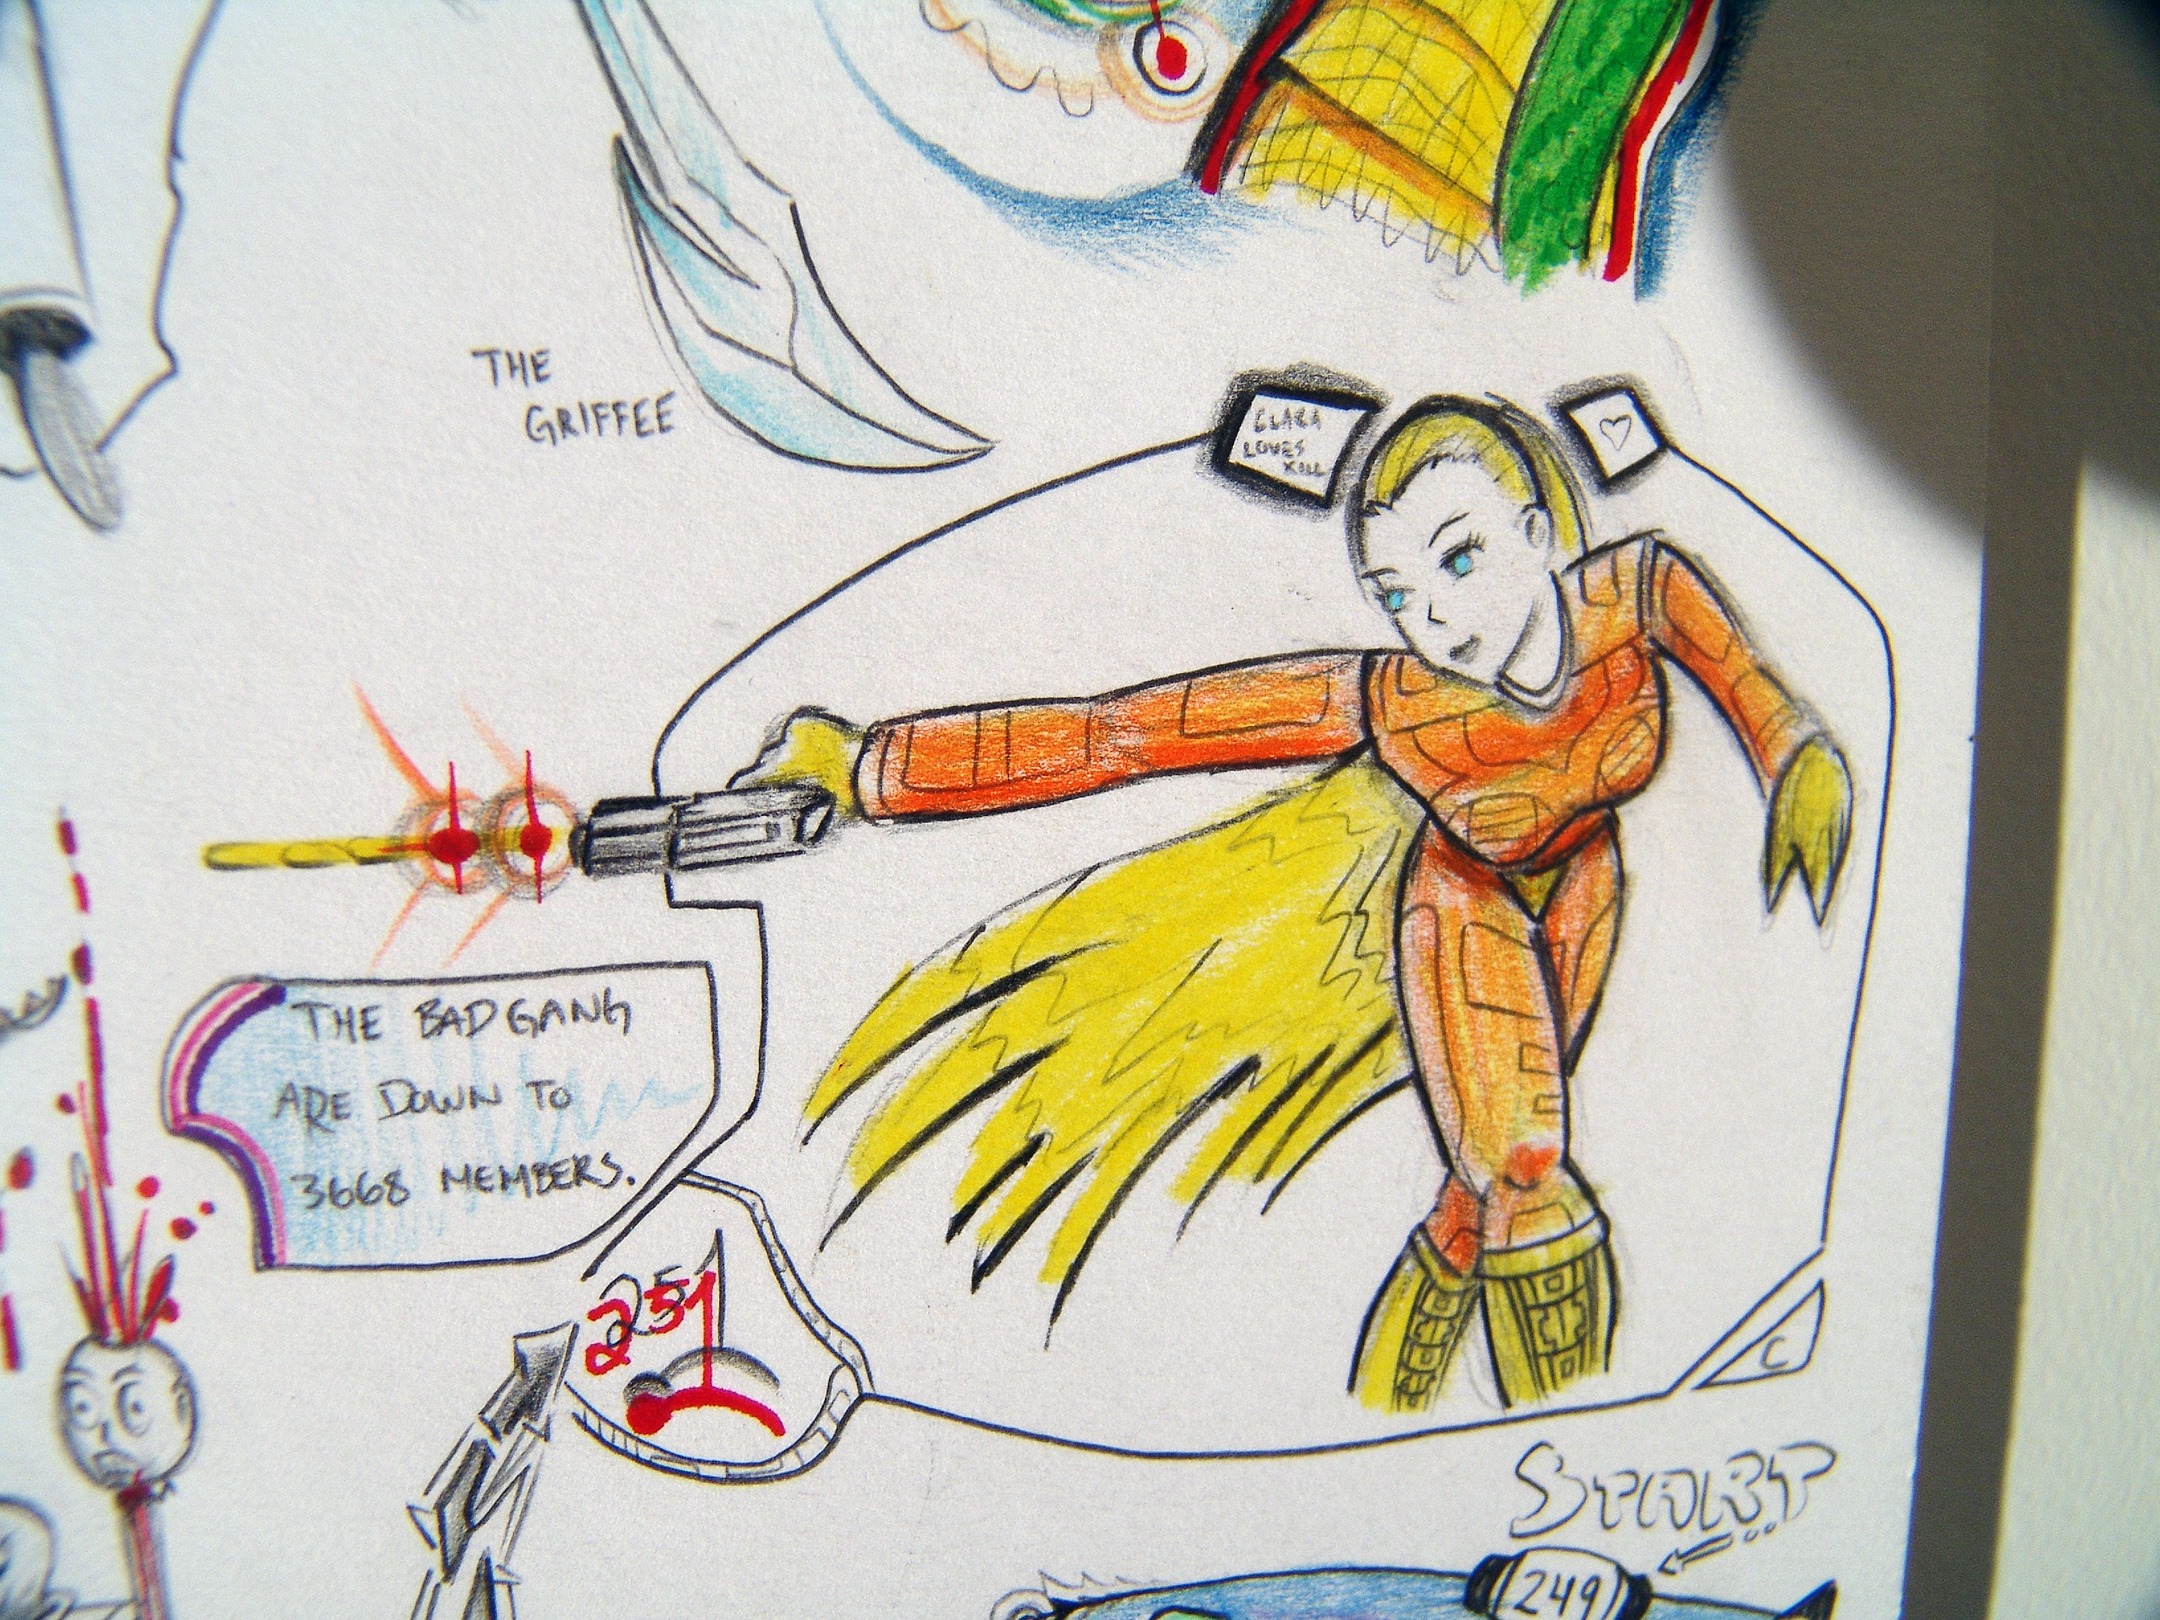 THE
GRIFFEE
CLARA
LOVES
KILL
THE BAD GANG
ARE DOWN TO
3668 MEMBERS.
251
C
START
249